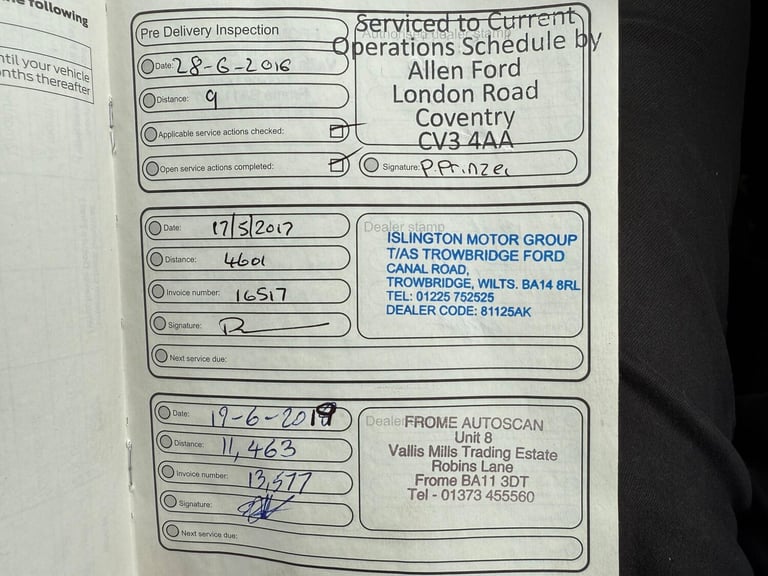 he following
ntil your vehicle
nths thereafter
Pre Delivery Inspection
Date: 28-6-2016
Distance: 9
Applicable service actions checked:
Open service actions completed:
Serviced to Current
Operations Schedule by
Allen Ford
London Road
Coventry
CV3 4AA
Signature: P.Prinzer
Date: 17/5/2017
Distance: 4601
Invoice number: 16517
Signature:
Next service due:
Dealer stamp
ISLINGTON MOTOR GROUP
T/AS TROWBRIDGE FORD
CANAL ROAD,
TROWBRIDGE, WILTS. BA14 8RL
TEL: 01225 752525
DEALER CODE: 81125AK
Date: 19-6-2019
Distance: 11,463
Invoice number: 13,577
Signature:
Next service due:
Dealer
FROME AUTOSCAN
Unit 8
Vallis Mills Trading Estate
Robins Lane
Frome BA11 3DT
Tel - 01373 455560